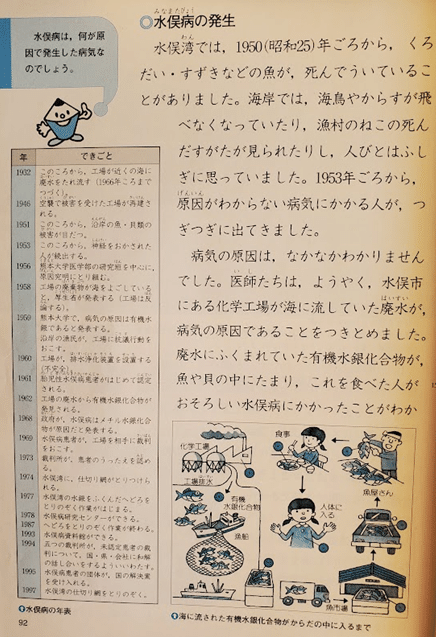 水俣病は，何が原
因で発生した病気な
のでしょう。
水俣病の発生
水俣湾では，1950(昭和25)年ごろから，くろ
だい・すずきなどの魚が，死んでういているこ
とがありました。海岸では，海鳥やからすが飛
べなくなっていたり，漁村のねこの死ん
だすがたが見られたりし，人びとはふし
ぎに思っていました。1953年ごろから，
原因がわからない病気にかかる人が，つ
ぎつぎに出てきました。
病気の原因は，なかなかわかりません
でした。医師たちは，ようやく，水俣市
にある化学工場が海に流していた廃水が，
病気の原因であることをつきとめました。
廃水にふくまれていた有機水銀化合物が，
魚や貝の中にたまり，これを食べた人が
おそろしい水俣病にかかったことがわか
年 できごと
1932 このころから，工場が近くの海に
廃水をたれ流す(1966年ごろまで
つづく)。
1946 空襲で被害を受けた工場が再建さ
れる。
1951 このころから，沿岸の魚・貝類の
被害が目だつ。
1953 このころから，神経をおかされた
人が続出する。
1956 熊本大学医学部の研究班を中心に，
原因究明にとり組む。
1958 工場の廃棄物が海をよごしている
と，厚生省が発表する(工場は反
論する)。
1959 熊本大学で，病気の原因は有機水
銀であると発表する。
沿岸の漁民が，工場に抗議行動を
おこす。
1960 工場が，排水浄化装置を設置する
(不完全)。
1961 胎児性水俣病患者がはじめて認定
される。
1962 工場の廃水から有機水銀化合物が
発見される。
1968 政府が，水俣病はメチル水銀化合
物が原因だと発表する。
1969 水俣病患者が，工場を相手に裁判
をおこす。
1973 裁判所が，患者のうったえを認め
る。
1974 水俣湾に，仕切り網がとりつけら
れる。
1977 水俣湾の水銀をふくんだへどろを
とりのぞく作業がはじまる。
1978 水俣病研究センターができる。
1987 へどろをとりのぞく作業が終わる。
1993 水俣病資料館ができる。
1994 五つの裁判所が，未認定患者の裁
判について，国・県・会社に和解
の話し合いをするよういいわたす。
1995 水俣病患者の団体が，国の解決案
を受け入れる。
1997 水俣湾の仕切り網をとりのぞく。
水俣病の年表
92
化学工場
工場排水
有機
水銀化合物
漁船
食事
人体に
入る
魚屋さん
魚市場
海に流された有機水銀化合物がからだの中に入るまで